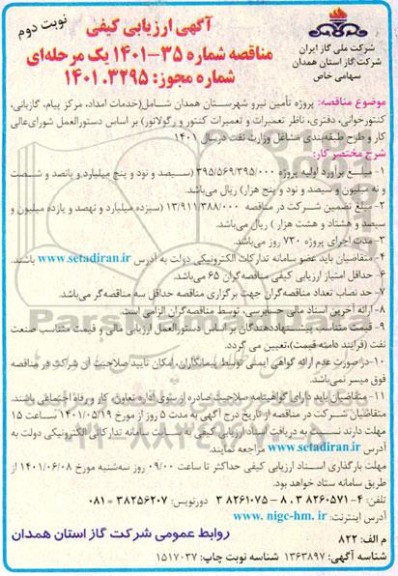 آگهی ارزیابی کیفی
نوبت دوم
مناقصه شماره ۳۵-۱۴۰۱ یک مرحله‌ای
شماره مجوز: ۱۴۰۱.۳۲۹۵
شرکت ملی گاز ایران
شرکت گاز استان همدان
سهامی خاص
موضوع مناقصه: پروژه تأمین نیرو شهرستان همدان شامل(خدمات امداد، مرکز پیام، گازبانی،
کنتورخوانی، دفتری، ناظر تعمیرات و تعمیرات کنتور و رگولاتور) بر اساس دستورالعمل شورای‌عالی
کار و طرح طبقه‌بندی مشاغل وزارت نفت درسال ۱۴۰۱
شرح مختصر کار:
۱- مبلغ برآورد اولیه پروژه ۳۹۵/۵۶۹/۳۹۵/۰۰۰ (سیصد و نود و پنج میلیارد و پانصد و شصت
و نه میلیون و سیصد و نود و پنج هزار) ریال می‌باشد.
۲- مبلغ تضمین شرکت در مناقصه ۱۳/۹۱۱/۳۸۸/۰۰۰ (سیزده میلیارد و نهصد و یازده میلیون و
سیصد و هشتاد و هشت هزار ) ریال می‌باشد.
۳- مدت اجرای پروژه ۷۳۰ روز می‌باشد.
۴- متقاضیان باید عضو سامانه تدارکات الکترونیکی دولت به آدرس www.setadiran.ir باشند.
۶- حداقل امتیاز ارزیابی کیفی مناقصه‌گران ۶۵ می‌باشد.
۷- حد نصاب تعداد مناقصه‌گران جهت برگزاری مناقصه حداقل سه مناقصه‌گر می‌باشد.
۸- ارائه آخرین اسناد مالی حسابرسی، توسط مناقصه‌گران الزامی است.
۹- قیمت متناسب پیشنهاددهندگان بر اساس (دستورالعمل ارزیابی مالی و قیمت متناسب صنعت
نفت (فرآیند دامنه قیمت))،تعیین می گردد.
۱۰-در صورت عدم ارائه گواهی ایمنی توسط پیمانکاران، امکان تایید صلاحیت آن شرکت در مناقصه
فوق میسر نمی‌باشد.
۱۱- متقاضیان باید دارای گواهینامه صلاحیت صادره از سوی اداره تعاون، کار و رفاه اجتماعی باشند.
متقاضیان شرکت در مناقصه از تاریخ درج آگهی به مدت ۵ روز از مورخ ۱۴۰۱/۰۵/۱۹ تا ساعت ۱۵
مهلت دارند نسبت به دریافت اسناد ارزیابی کیفی سامانه تدارکاتی الکترونیکی دولت به
آدرس www.setadiran.ir مراجعه نمایند.
مهلت بارگذاری اسناد ارزیابی کیفی حداکثر تا ساعت ۰۹/۰۰ روز سه‌شنبه مورخ ۱۴۰۱/۰۶/۰۸ از
طریق سامانه ستاد خواهد بود.
تلفن: ۴-۳۸۲۶۰۵۷۱ ۸ - ۳۸۲۶۱۰۷۵ دورنویس: ۳۸۲۵۶۲۰۷ -۰۸۱
آدرس اینترنت: www.nigc-hm.ir
م الف: ۸۲۲
روابط عمومی شرکت گاز استان همدان
شناسه آگهی: ۱۳۶۳۸۹۷ شناسه نوبت چاپ: ۱۵۱۷۰۳۷